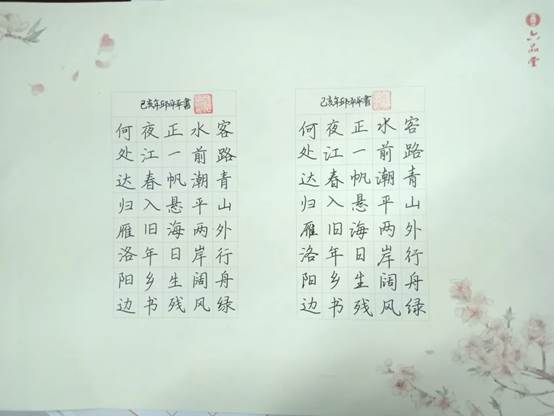 六品堂
己亥年邱书
客路青山外行舟绿
水前潮平两岸阔风
正一帆悬海日生残
夜江春入旧年乡书
何处达归雁洛阳边
己亥年邱书
客路青山外行舟绿
水前潮平两岸阔风
正一帆悬海日生残
夜江春入旧年乡书
何处达归雁洛阳边